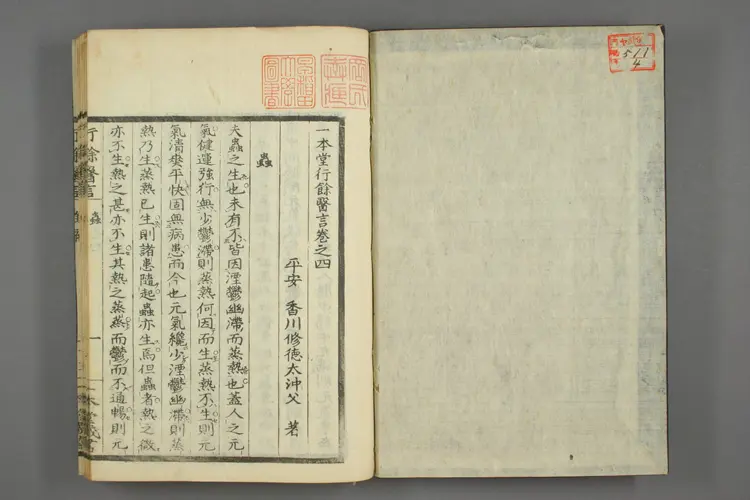 一本堂行餘醫言卷之四
平安 香川修德太沖父 著
蟲
夫蟲之生也未有不皆因湮鬱幽滯而蒸熱也蓋人之元
氣健運強行無少鬱滯則蒸熱何因而生蒸熱不生則元
氣清爽平快固無病患而今也元氣纔少湮鬱幽滯則蒸
熱乃生蒸熱已生則諸患隨起蟲亦生焉但蟲者熱之微
亦不生熱之甚亦不生其熱之蒸蒸而鬱而不通暢則元
行餘醫言
蟲
一
511
4